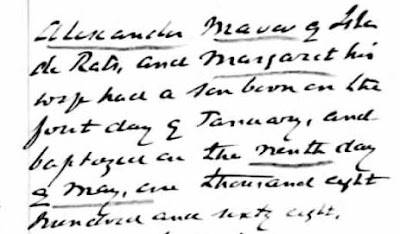 Alexander Mavor of Isla
de Rats, and Margaret his
wife had a son born on the
first day of January, and
baptized on the ninth day
of May, one thousand eight
hundred and sixty eight.